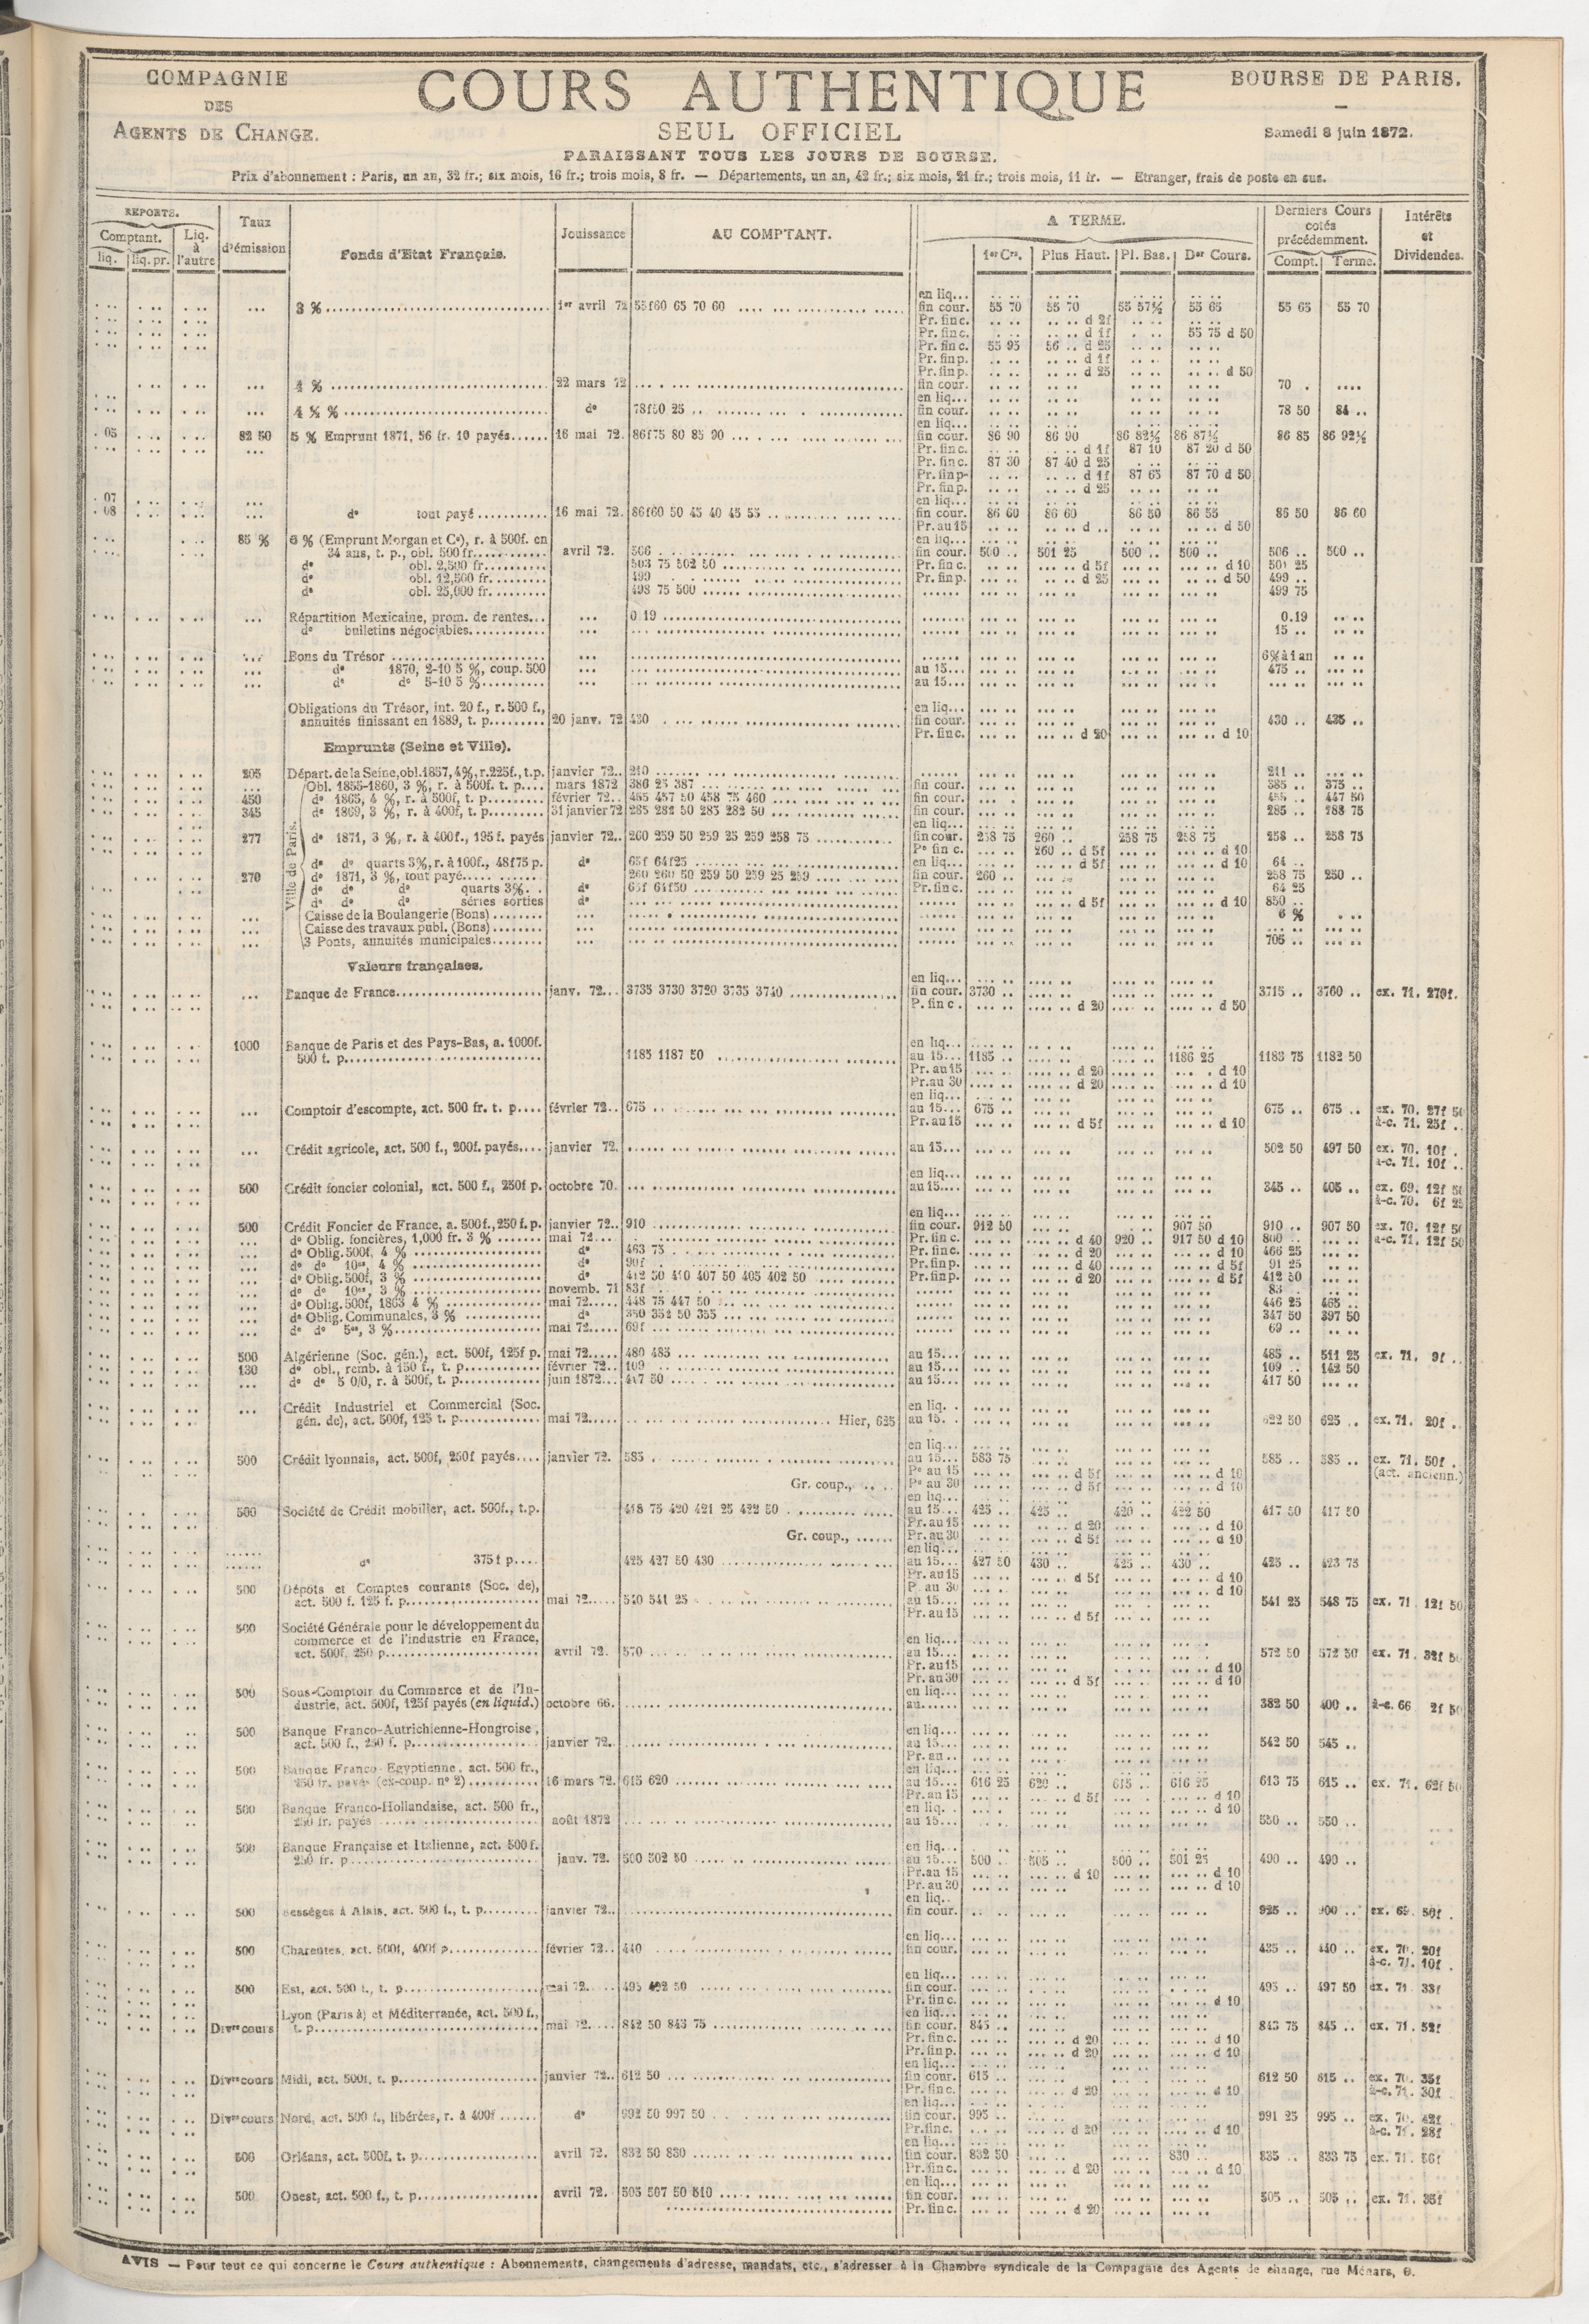 COMPAGNIE
DES
AGENTS DE CHANGE.
COURS AUTHENTIQUE
SEUL OFFICIEL
PARAISSANT TOUS LES JOURS DE BOURSE.
BOURSE DE PARIS.
Samedi 8 juin 1872.
Prix d'abonnement : Paris, un an, 32 fr.; six mois, 16 fr.; trois mois, 8 fr. — Départements, un an, 42 fr.; six mois, 21 fr.; trois mois, 11 fr. — Etranger, frais de poste en sus.
REPORTS. Comptant. liq. liq. pr. Liq. à l'autre
Taux d'émission
Fonds d'Etat Français.
Jouissance
AU COMPTANT.
A TERME.
1er Crs. Plus Haut. Pl. Bas. Der Cours.
Derniers Cours cotés précédemment.
Compt. Terme.
Intérêts et Dividendes.
en liq...
3 % 1er avril 72 55f60 65 70 60 fin cour. 55 70 55 70 55 57½ 55 65 55 65 55 70
Pr. fin c. d 2f
Pr. fin c. d 1f 55 75 d 50
Pr. fin c. 55 95 56 .. d 25
Pr. fin p. d 1f
Pr. fin p. d 25 d 50
4 % 22 mars 72 fin cour. 70
en liq...
4 ½ % do 78f50 25 fin cour. 78 50 84 ..
en liq...
. 05 82 50 5 % Emprunt 1871, 56 fr. 10 payés 16 mai 72. 86f75 80 85 90 fin cour. 86 90 86 90 86 82½ 86 87½ 86 85 86 92½
Pr. fin c. d 1f 87 10 87 20 d 50
Pr. fin c. 87 30 87 40 d 25
Pr. fin p. d 1f 87 65 87 70 d 50
Pr. fin p. d 25
. 07 en liq...
. 08 do tout payé 16 mai 72. 86f60 50 45 40 45 55 fin cour. 86 60 86 60 86 50 86 55 86 50 86 60
Pr. au 15 d .. d 50
85 % 6 % (Emprunt Morgan et Ce), r. à 500f. en en liq...
34 ans, t. p., obl. 500 fr. avril 72. 506 fin cour. 500 .. 501 25 500 .. 500 .. 506 .. 500 ..
do obl. 2,500 fr. 503 75 502 50 Pr. fin c. d 5f d 10 501 25
do obl. 12,500 fr. 499 Pr. fin p. d 25 d 50 499 ..
do obl. 25,000 fr. 498 75 500 499 75
Répartition Mexicaine, prom. de rentes... 0 19 0.19
do bulletins négociables 15 ..
Bons du Trésor 6% à 1 an
do 1870, 2-10 5 %, coup. 500 au 15... 475 ..
do do 5-10 5 % au 15...
Obligations du Trésor, int. 20 f., r. 500 f., en liq...
annuités finissant en 1889, t. p. 20 janv. 72 430 fin cour. 430 .. 435 ..
Pr. fin c. d 20 d 10
Emprunts (Seine et Ville).
205 Départ. de la Seine, obl. 1857, 4%, r. 225f., t.p. janvier 72.. 210 211 ..
Ville de Paris.
Obl. 1855-1860, 3 %, r. à 500f. t. p. mars 1872 386 25 387 fin cour. 385 .. 375 ..
450 do 1865, 4 %, r. à 500f, t. p. février 72.. 455 457 50 458 75 460 fin cour. 455 .. 447 50
345 do 1869, 3 %, r. à 400f, t. p. 31 janvier 72 285 282 50 283 282 50 fin cour. 285 .. 288 75
en liq...
277 do 1871, 3 %, r. à 400f., 195 f. payés janvier 72.. 260 259 50 259 25 259 258 75 fin cour. 258 75 260 .. 258 75 258 75 258 .. 258 75
Pe fin c. 260 .. d 5f d 10
do do quarts 3%, r. à 100f., 48f75 p. do 65f 64f25 en liq... d 5f d 10 64 ..
270 do 1871, 3 %, tout payé 260 260 50 259 50 259 25 259 fin cour. 260 .. 258 75 250 ..
do do do quarts 3% do 65f 64f50 Pr. fin c. 64 25
do do do séries sorties do d 5f d 10 850 ..
Caisse de la Boulangerie (Bons) 6 %
Caisse des travaux publ. (Bons)
3 Ponts, annuités municipales 705 ..
Valeurs françaises.
en liq...
Banque de France janv. 72... 3735 3730 3720 3735 3740 fin cour. 3730 .. 3715 .. 3760 .. ex. 71. 270f.
P. fin c. d 20 d 50
1000 Banque de Paris et des Pays-Bas, a. 1000f. en liq...
500 f. p. 1185 1187 50 au 15... 1185 .. 1186 25 1183 75 1182 50
Pr. au 15 d 20 d 10
Pr. au 30 d 20 d 10
en liq...
Comptoir d'escompte, act. 500 fr. t. p. février 72.. 675 au 15... 675 .. 675 .. 675 .. ex. 70. 27f 50
Pr. au 15 d 5f d 10 à-c. 71. 25f ..
Crédit agricole, act. 500 f., 200f. payés janvier 72. au 15... 502 50 497 50 ex. 70. 10f .
à-c. 71. 10f ..
en liq...
500 Crédit foncier colonial, act. 500 f., 250f p. octobre 70. au 15... 345 .. 405 .. ex. 69. 12f 50
à-c. 70. 6f 25
en liq...
500 Crédit Foncier de France, a. 500f., 250 f. p. janvier 72.. 910 fin cour. 912 50 907 50 910 .. 907 50 ex. 70. 12f 50
do Oblig. foncières, 1,000 fr. 3 % mai 72 Pr. fin c. d 40 920 .. 917 50 d 10 800 .. à-c. 71. 12f 50
do Oblig. 500f, 4 % do 463 75 Pr. fin c. d 20 d 10 466 25
do do 10es, 4 % do 90f Pr. fin p. d 40 d 5f 91 25
do Oblig. 500f, 3 % do 412 50 410 407 50 405 402 50 Pr. fin p. d 20 d 5f 412 50
do do 10es, 3 % novemb. 71 83f 83 ..
do Oblig. 500f, 1863 4 % mai 72 448 75 447 50 446 25 465 ..
do Oblig. Communales, 3 % do 350 352 50 355 347 50 397 50
do do 5es, 3 % mai 72 69f 69 ..
500 Algérienne (Soc. gén.), act. 500f, 125f p. mai 72 480 485 au 15... 485 .. 511 25 ex. 71. 9f ..
130 do obl., remb. à 150 f., t. p. février 72.. 109 au 15... 109 .. 142 50
do do 5 0/0, r. à 500f, t. p. juin 1872 417 50 au 15... 417 50
Crédit Industriel et Commercial (Soc. en liq.
gén. de), act. 500f, 125 t. p. mai 72 Hier, 625 au 15. 622 50 625 .. ex. 71. 20f ..
en liq...
500 Crédit lyonnais, act. 500f, 250f payés janvier 72. 585 au 15... 583 75 585 .. 585 .. ex. 71. 50f .
Pe au 15 d 5f d 10 (act. ancienn.)
Gr. coup., Pe au 30 d 5f d 10
en liq...
500 Société de Crédit mobilier, act. 500f., t.p. 418 75 420 421 25 422 50 au 15... 425 .. 425 .. 420 .. 422 50 417 50 417 50
Pr. au 15 d 20 d 10
Gr. coup., Pr. au 30 d 5f d 10
en liq...
do 375 f p. 425 427 50 430 au 15... 427 50 430 .. 425 .. 430 .. 425 .. 423 75
Pr. au 15 d 5f d 10
500 Dépôts et Comptes courants (Soc. de), P. au 30 d 10
act. 500 f. 125 f. p. mai 72 540 541 25 au 15... 541 25 548 75 ex. 71 12f 50
Pr. au 15 d 5f
500 Société Générale pour le développement du
commerce et de l'industrie en France, en liq...
act. 500f, 250 p. avril 72. 570 au 15... 572 50 572 50 ex. 71. 32f 50
Pr. au 15 d 10
Pr. au 30 d 5f d 10
500 Sous-Comptoir du Commerce et de l'In- en liq...
dustrie, act. 500f, 125f payés (en liquid.) octobre 66. au 382 50 400 .. à-c. 66 2f 50
500 Banque Franco-Autrichienne-Hongroise, en liq...
act. 500 f., 250 f. p. janvier 72.. au 15... 542 50 545 ..
Pr. au ..
500 Banque Franco-Egyptienne, act. 500 fr., en liq...
250 fr. payés (ex-coup. no 2) 16 mars 72. 615 620 au 15... 616 25 620 .. 615 .. 616 25 613 75 615 .. ex. 71. 62f 50
Pr. au 15 d 5f d 10
500 Banque Franco-Hollandaise, act. 500 fr., en liq. d 10
250 fr. payés août 1872 au 15... 550 .. 550 ..
500 Banque Française et Italienne, act. 500 f. en liq...
250 fr. p. janv. 72. 500 502 50 au 15... 500 .. 505 .. 500 .. 501 25 490 .. 490 ..
Pr. au 15 d 10 d 10
Pr. au 30 d 10
en liq..
500 Bességes à Alais, act. 500 f., t. p. janvier 72.. fin cour. 925 .. 900 .. ex. 69. 50f .
en liq...
500 Charentes, act. 500f, 400f p. février 72.. 440 fin cour. 435 .. 440 .. ex. 70. 20f
à-c. 71. 10f .
en liq...
500 Est, act. 500 f., t. p. mai 72 495 492 50 fin cour. 495 .. 497 50 ex. 71. 33f
Pr. fin c. d 10
Lyon (Paris à) et Méditerranée, act. 500 f., en liq...
Divers cours t. p. mai 72 842 50 843 75 fin cour. 845 .. 843 75 845 .. ex. 71. 52f
Pr. fin c. d 20 d 10
Pr. fin p. d 20 d 10
en liq...
Divers cours Midi, act. 500f, t. p. janvier 72.. 612 50 fin cour. 615 .. 612 50 615 .. ex. 70. 35f
Pr. fin c. d 20 d 10 à-c. 71. 30f
en liq...
Divers cours Nord, act. 500 f., libérées, r. à 400f do 992 50 997 50 fin cour. 995 .. 991 25 995 .. ex. 70. 42f
Pr. fin c. d 20 d 10 à-c. 71. 28f
en liq...
500 Orléans, act. 500f, t. p. avril 72. 832 50 830 fin cour. 832 50 830 .. 835 .. 833 75 ex. 71. 56f
Pr. fin c. d 20 d 10
en liq...
500 Ouest, act. 500 f., t. p. avril 72. 505 507 50 510 fin cour. 505 .. 505 .. ex. 71. 35f
Pr. fin c. d 20
AVIS — Pour tout ce qui concerne le Cours authentique : Abonnements, changements d'adresse, mandats, etc., s'adresser à la Chambre syndicale de la Compagnie des Agents de change, rue Ménars, 6.